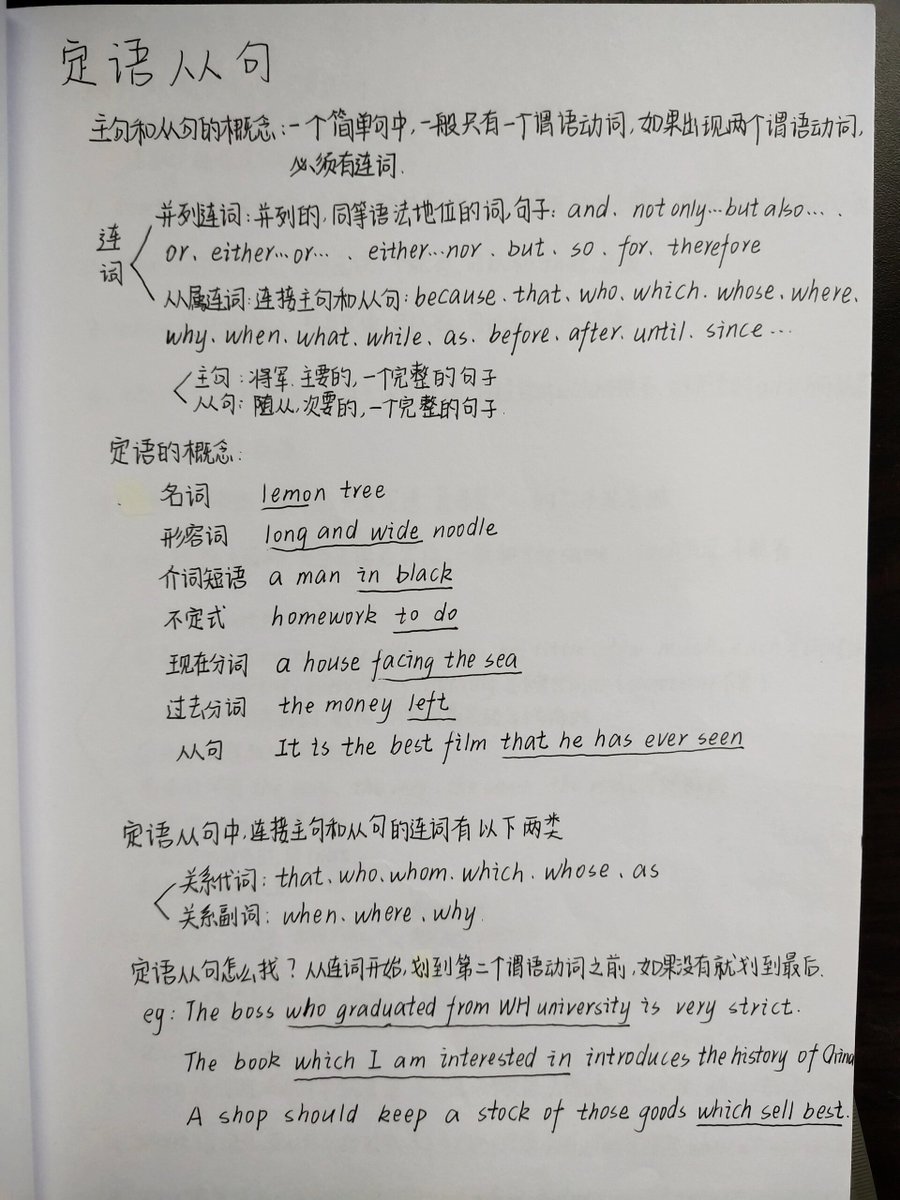 定语从句
主句和从句的概念:一个简单句中,一般只有一个谓语动词,如果出现两个谓语动词,
必须有连词.
连词
并列连词:并列的,同等语法地位的词,句子: and、not only…but also…、
or、either…or…、either…nor、but、so、for、therefore
从属连词:连接主句和从句: because、that、who、which、whose、where、
why、when、what、while、as、before、after、until、since…
主句:将军.主要的,一个完整的句子
从句:随从,次要的,一个完整的句子.
定语的概念:
名词 lemon tree
形容词 long and wide noodle
介词短语 a man in black
不定式 homework to do
现在分词 a house facing the sea
过去分词 the money left
从句 It is the best film that he has ever seen
定语从句中,连接主句和从句的连词有以下两类
关系代词: that、who、whom、which、whose、as
关系副词: when、where、why.
定语从句怎么找?从连词开始,划到第二个谓语动词之前,如果没有就划到最后.
eg: The boss who graduated from WH university is very strict.
The book which I am interested in introduces the history of China
A shop should keep a stock of those goods which sell best.